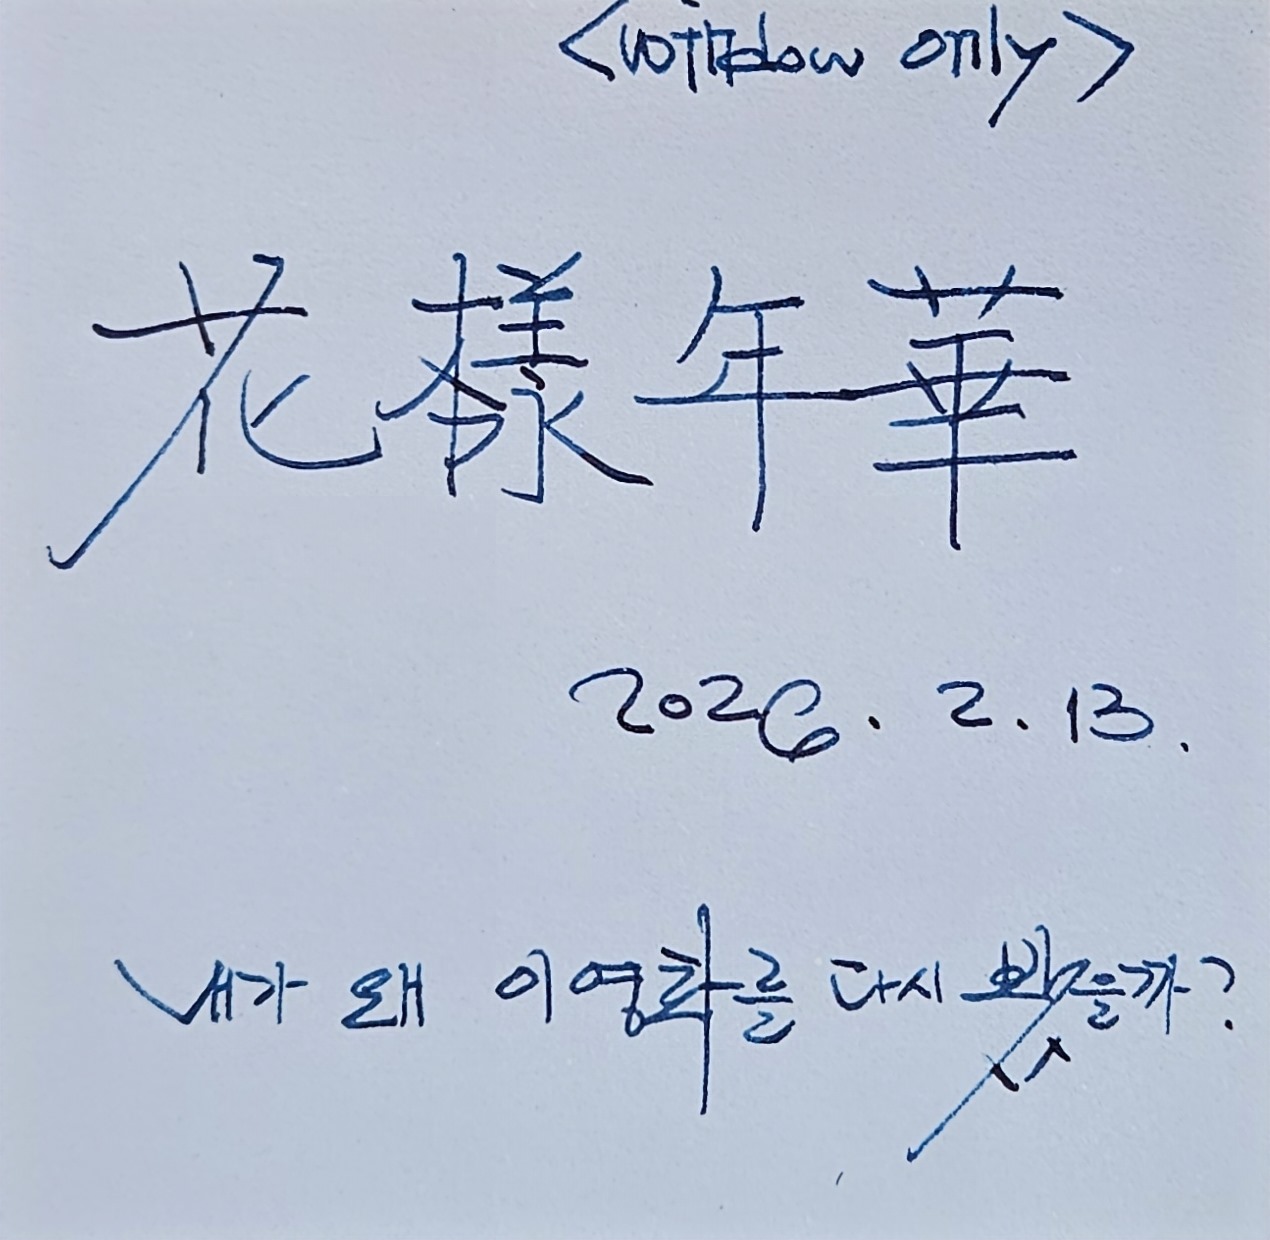 <window only>
花樣年華
2026. 2. 13.
내가 왜 이 영화를 다시 봤을까?